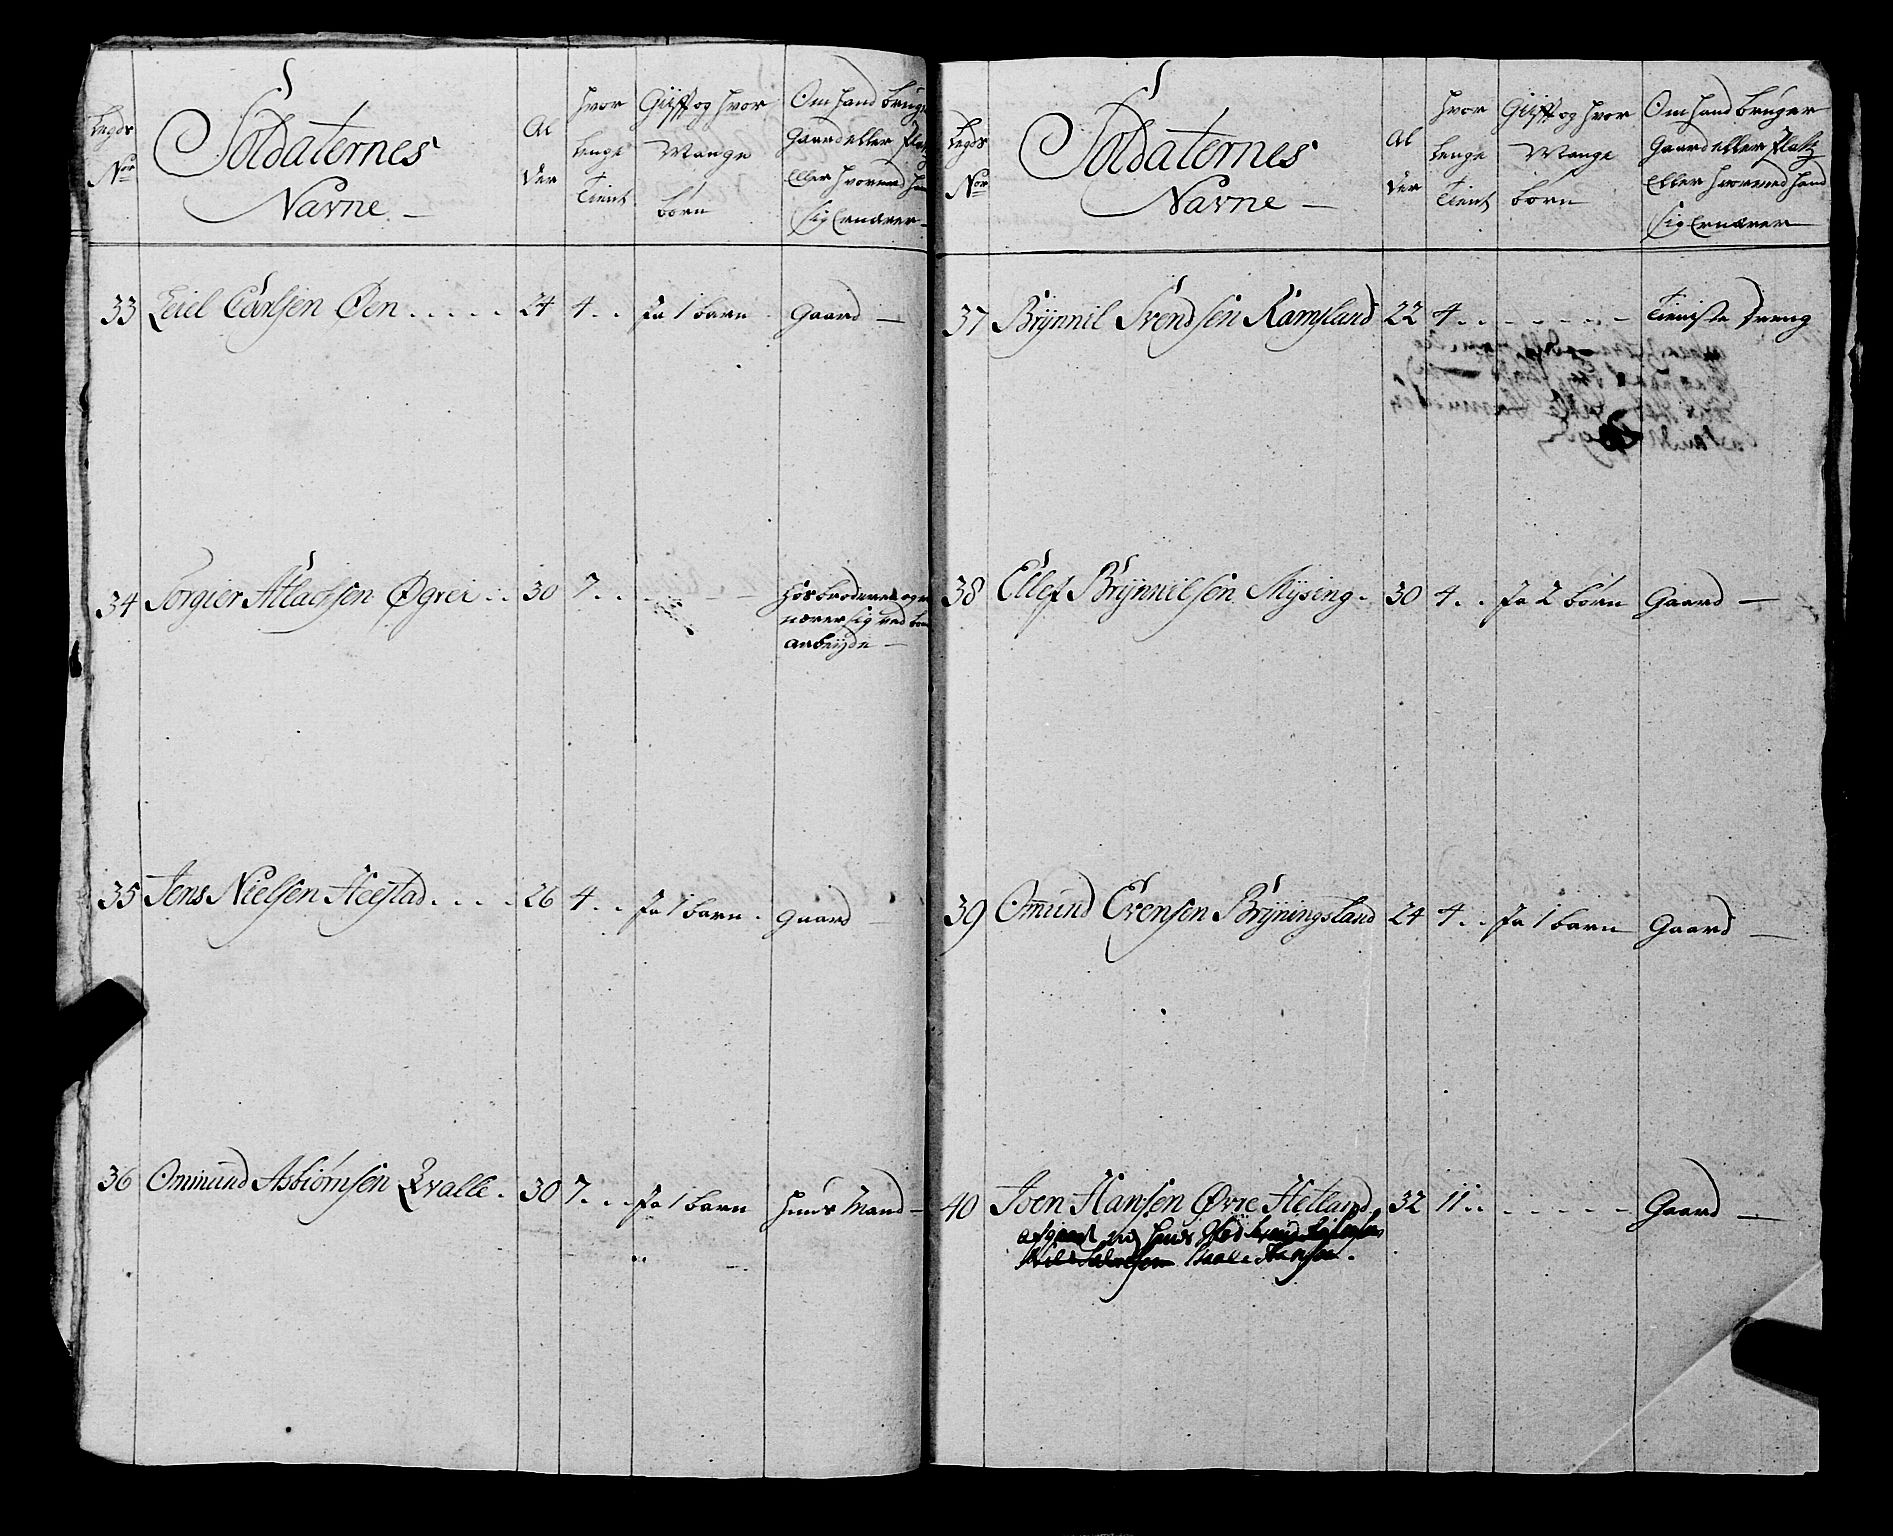 Legds
No
Soldaternes
Navne
Al
der
hvor
lenge
Tient
Gift og hvor
Mange
børn
Om hand bruger
Gaard eller Platz
Eller hvormed hand
sig Ernærer
33 Eeiel Carlsen Øen 24 4 Ja 1 barn Gaard
34 Torgier Atlachsen Øgrei 30 7
hos broderen og
nærer sig ved
arbeyde
35 Jens Nielsen Heestad 26 4 Ja 1 barn gaard
36 Ommund Asbiørnsen Qvalle 30 7 Ja 1 barn Huus Mand
Legds
No
Soldaternes
Navne
Al
der
hvor
lenge
Tient
Gift og hvor
Mange
børn
Om hand bruger
Gaard eller Platz
Eller hvormed hand
sig Ernærer
37 Brÿnnil Svendsen Ramsland 22 4 Tieniste Dreng
38 Ellef Brÿnnilsen Mÿsing 30 4 Ja 2 børn Gaard
39 Omund Evensen Brÿningsland 24 4 Ja 1 barn Gaard
40 Joen Hansen Øvre Hetland 32 11 Gaard
afgaaet og hands Sted
Hansen